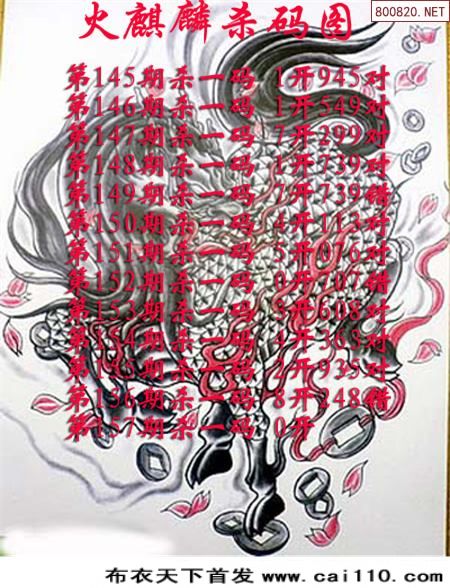 800820.NET
火麒麟杀码图
第145期杀一码 1开945对
第146期杀一码 1开549对
第147期杀一码 7开299对
第148期杀一码 1开739对
第149期杀一码 7开739错
第150期杀一码 4开113对
第151期杀一码 5开076对
第152期杀一码 0开707错
第153期杀一码 开608对
第154期杀一码 开363对
第155期杀一码 开935对
第156期杀一码 8开248错
第157期杀一码 0开
布衣天下首发 www.cai110.com